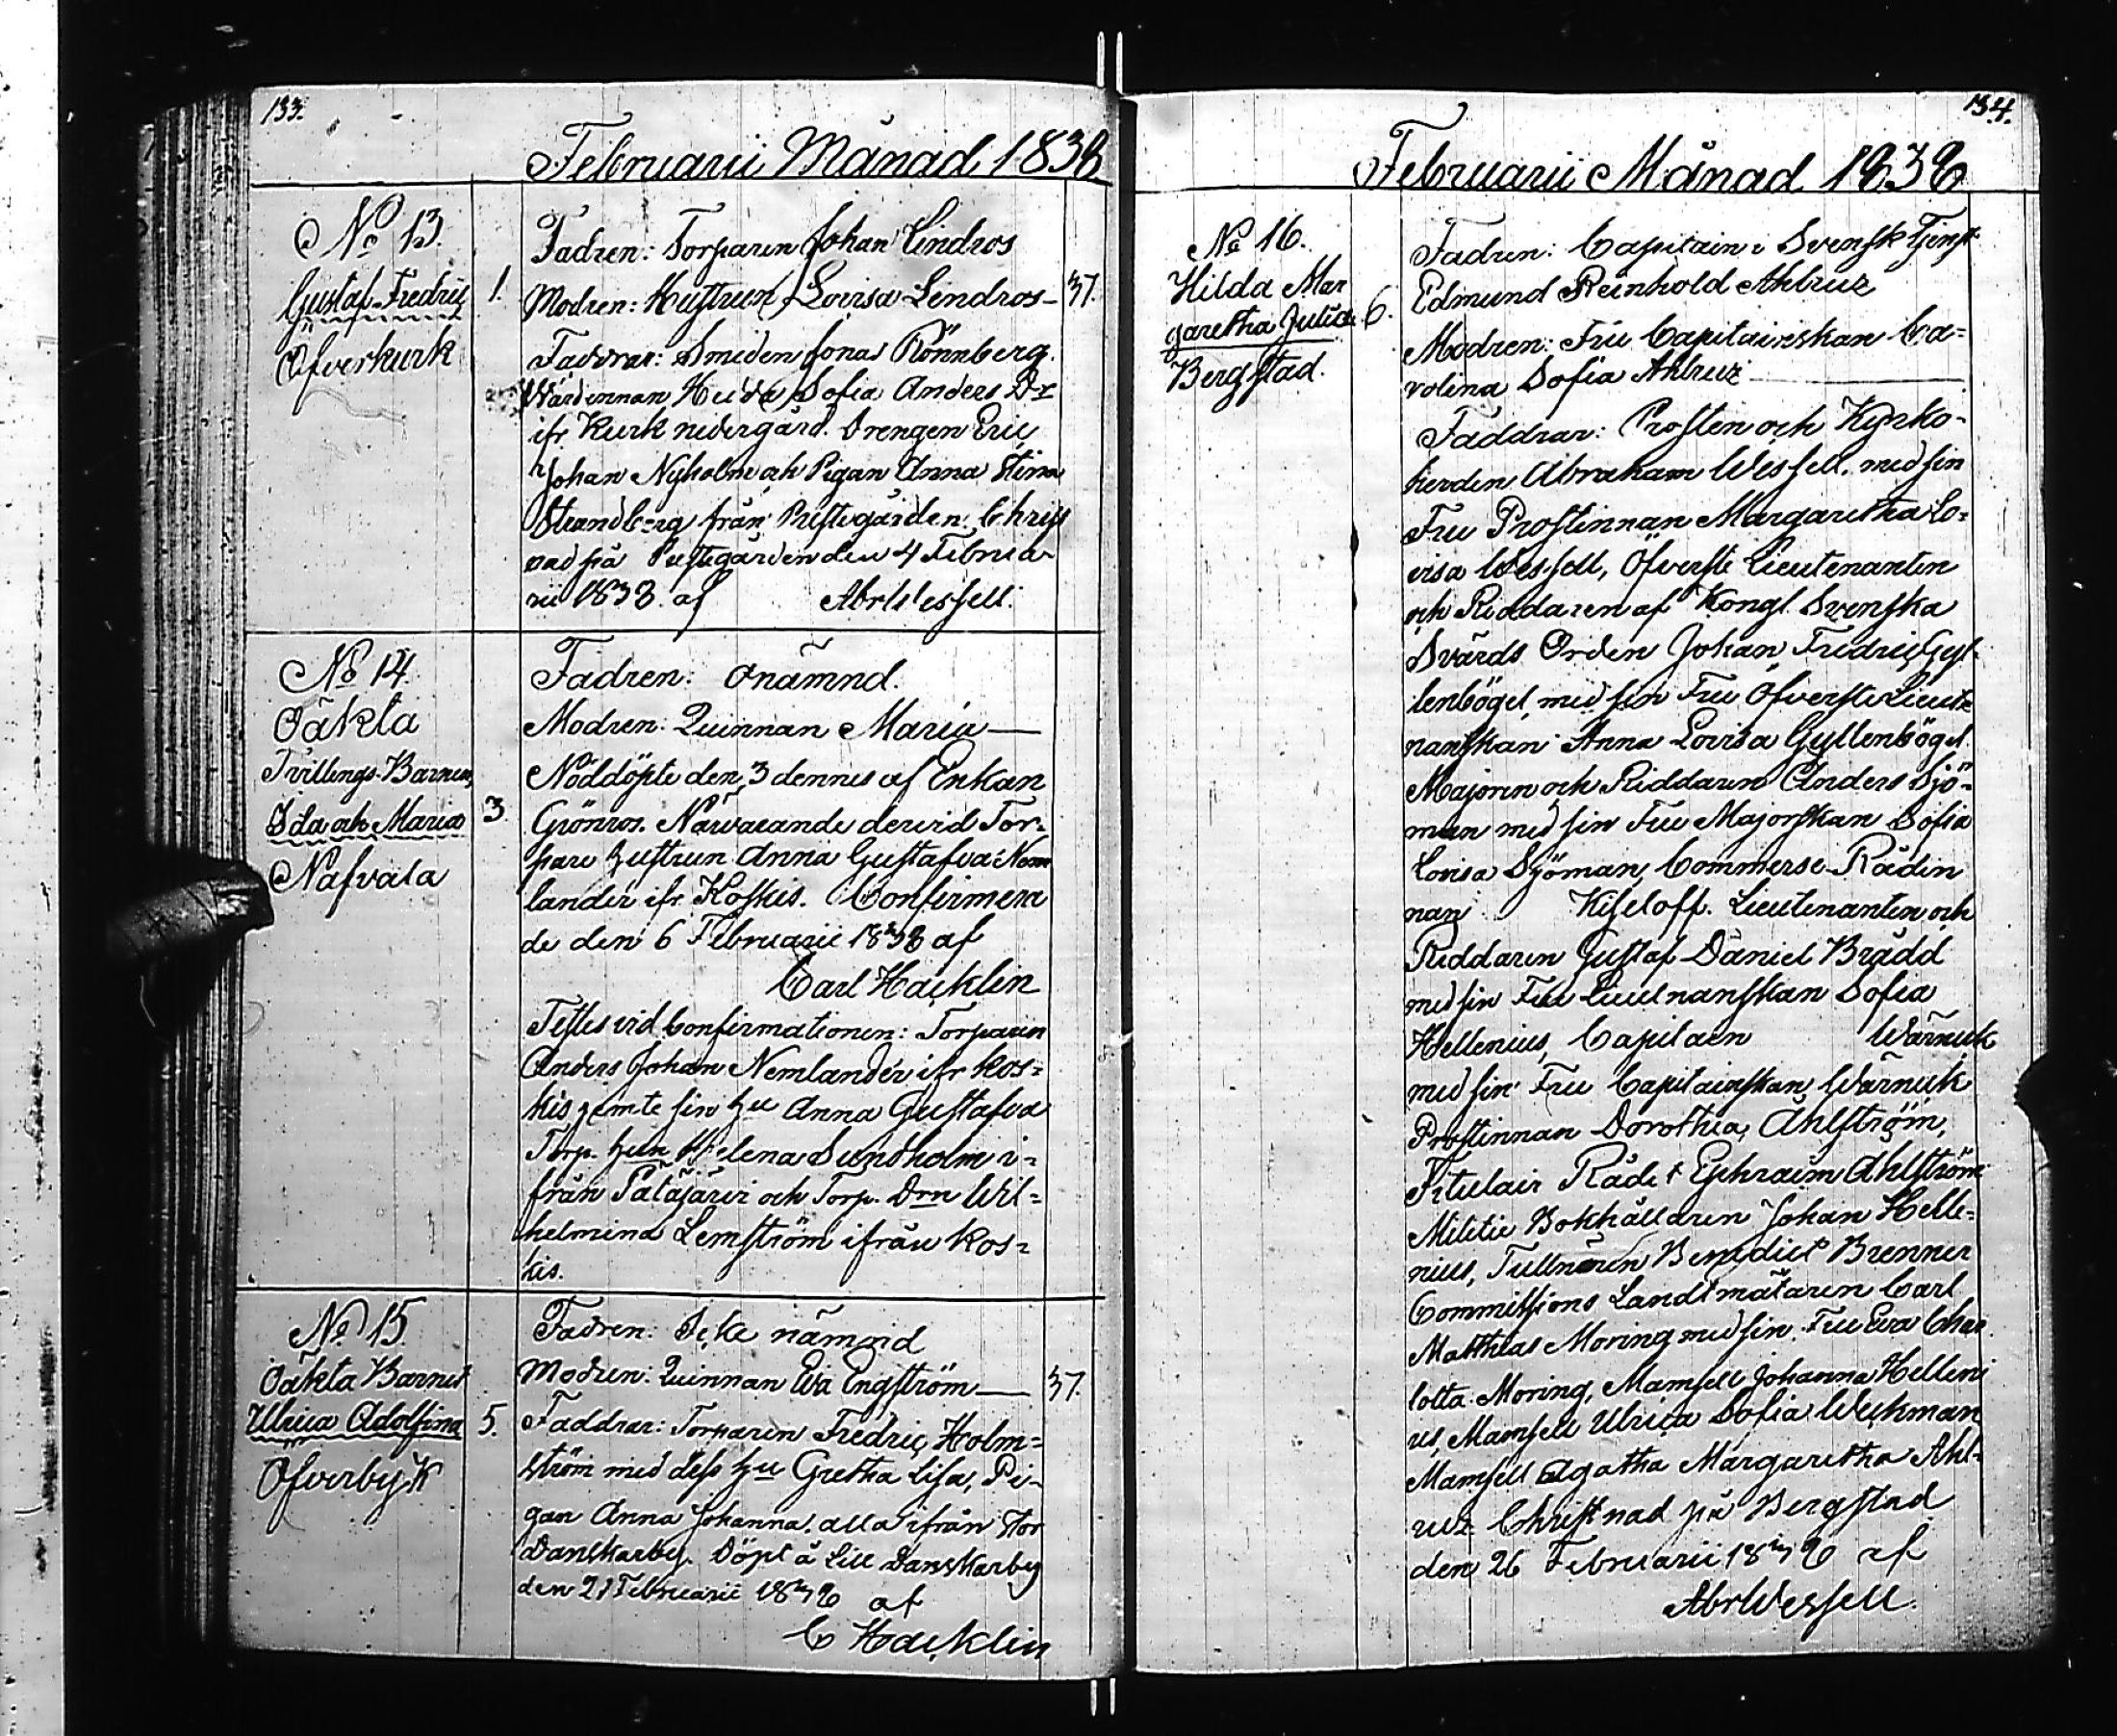 133.
Februarii Månad 1838
No 13.
Gustaf Fredric
Öfverkurk
1.
Fadren: Torparen Johan Lindros
Modren: Hustrun Lovisa Lindros 37.
Faddrar: Smeden Jonas Rönnberg
Värdinnan Hedda Sofia Anders Dr
ifr Kurk nedergård. Drengen Eric
Johan Nyholm och Pigan Anna Stina
Strandberg från Prestegården. Christ
nad på Prestegården den 4 Februa
rii 1838. af Abr Wessell.
No 14.
Oäkta
Tvillings-Barnen,
Ida och Maria
Nafvala
3.
Fadren: onämnd.
Modren: Quinnan Maria
Nöddöpte den 3 dennes af Enkan
Grönros. Närvarande dervid Tor-
pare hustrun Anna Gustafva Nem
lander ifr Koskis. Confirmera
de den 6 Februarii 1838 af
Carl Hacklin
Testes vid Confirmationen: Torparen
Anders Johan Nemlander ifr Kos=
kis jemte sin hu Anna Gustafva
Torp. hun Helena Sundholm i-
från Patajärvi och Torp. Drn Wil=
helmina Lemström ifrån Kos=
kis.
No 15.
Oäkta Barnet
Ulrica Adolfina
Öfverby K
5.
Fadren: Icke nämnd
Modren: Quinnan Eva Engström 37.
Faddrar: Torparen Fredric Holm=
ström med dess hu Gretha Lisa, Pi-
gan Anna Johanna, alla ifrån Stor
Danskarby. Döpt å Lill Danskarby
den 21 Februarii 1838 af
C Hacklin
134.
Februarii Månad 1838
No 16.
Hilda Mar
garetha Julia
Bergstad.
6.
Fadren: Capitain i Svensk Tjenst
Edmund Reinhold Ahlruz
Modren: Fru Capitainskan Ca=
rolina Sofia Ahlruz
Faddrar: Prosten och Kyrko-
herden Abraham Wessell, med sin
Fru Prostinnan Margaretha Lo=
visa Wessell, Öfverste Lieutenanten
och Riddaren af Kongl. Svenska
Svärds Orden Johan Fredric Gyl-
lenbögel, med sin Fru Öfverste Lieute
nanskan Anna Lovisa Gyllenbögel.
Majoren och Riddaren Anders Sjö-
man med sin Fru Majorskan Sofia
Lovisa Sjöman, Commerse-Rådin
nan Kiseloff. Lieutenanten och
Riddaren Gustaf Daniel Brädd
med sin Fru Lieutnanskan Sofia
Hellenius, Capitaen Wärnick
med sin Fru Capitainskan Wärnick
Prostinnan Dorothea Ahlström,
Titulair Rådet Ephraim Ahlström
Militie Bokhållaren Johan Helle=
nius, Tullnären Benedict Brenner
Commissions Landtmätaren Carl
Matthias Moring med sin Fru Eva Char
lotta Moring, Mamsell Johanna Helleni
us, Mamsell Ulrica Sofia Weckman
Mamsell Agatha Margaretha Ahl-
ruz Christnad på Bergstad
den 26 Februarii 1838 af
Abr Wessell.